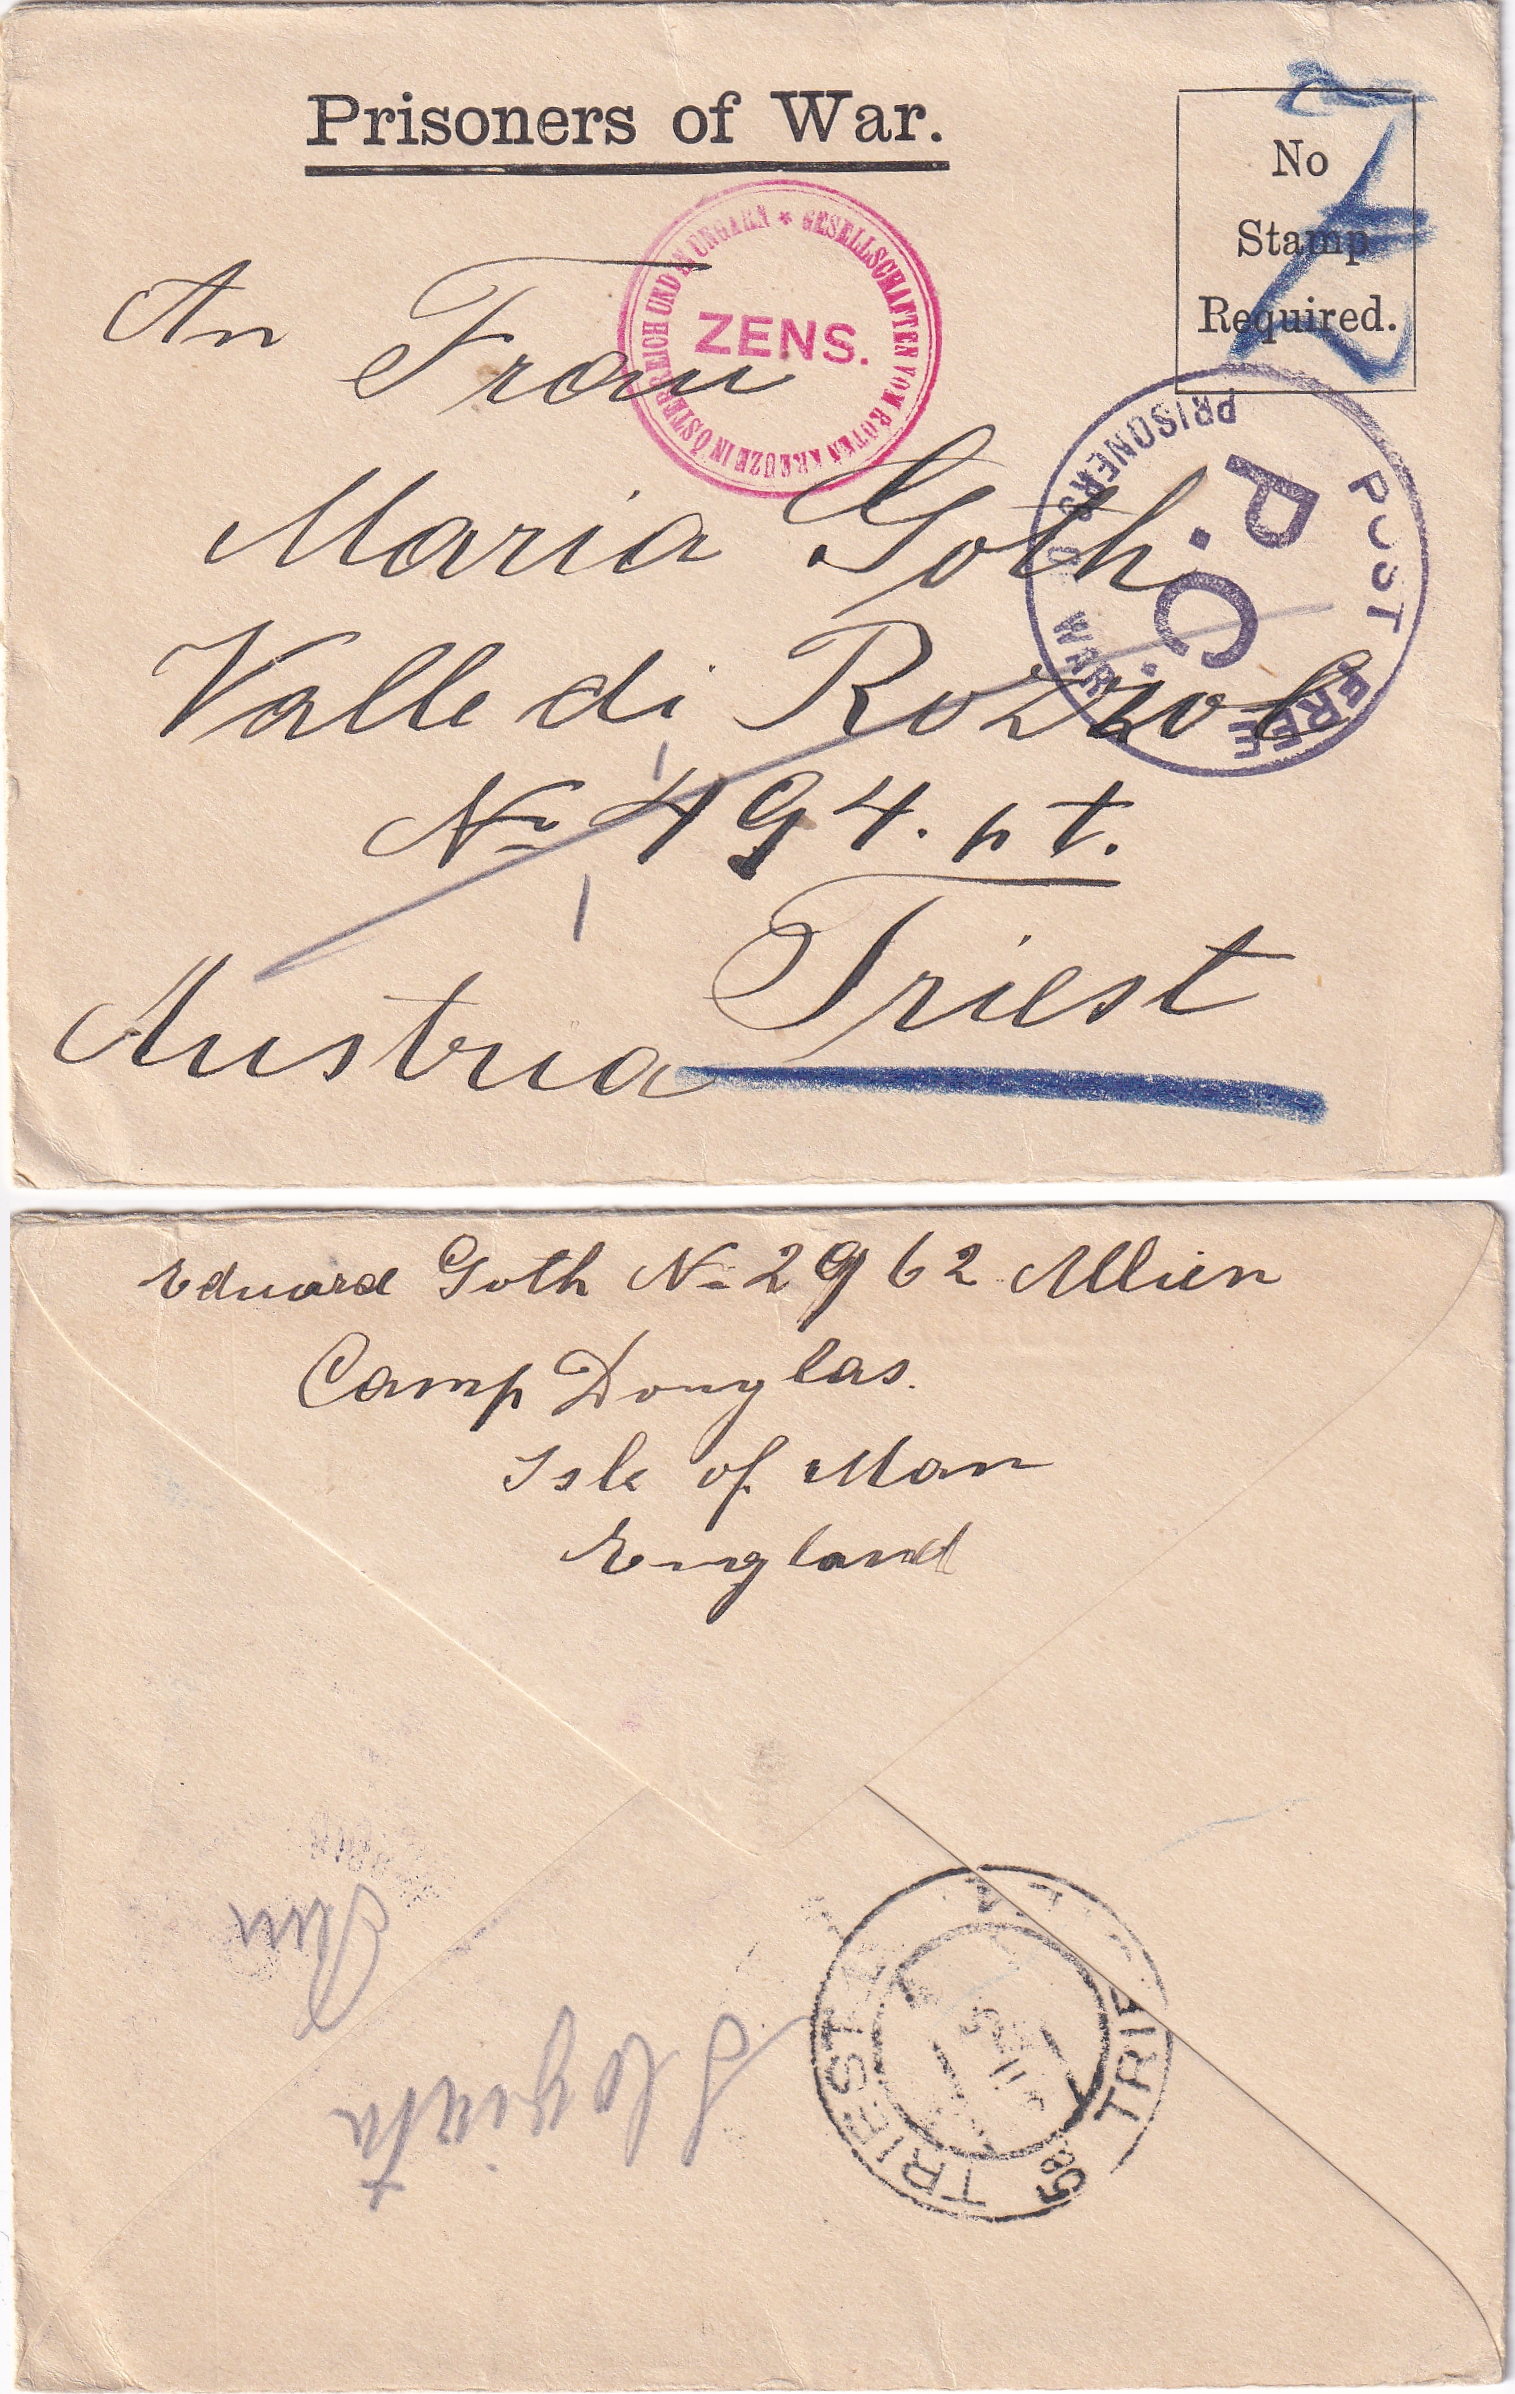 Prisoners of War.
No
Stamp
Required.
GESELLSCHAFTEN VOM ROTEN KREUZE IN ÖSTERREICH UND IN UNGARN *
ZENS.
POST FREE
P.C.
PRISONERS OF WAR
An Frau
Maria Goth
Valle di Rozzol
No 494. pt.
Triest
Austria
Eduard Goth No 2962 Allien
Camp Douglas.
Isle of Man
England
TRIEST
TRIE